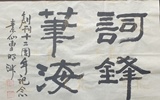 詞鋒
筆海
創刊十二周年紀念